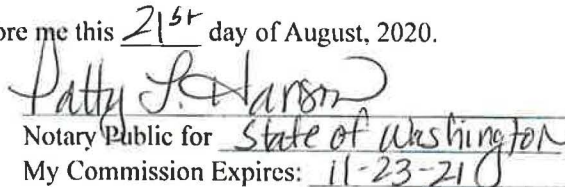 ore me this 21st day of August, 2020.
Patty J. Hanson
Notary Public for State of Washington
My Commission Expires: 11-23-21